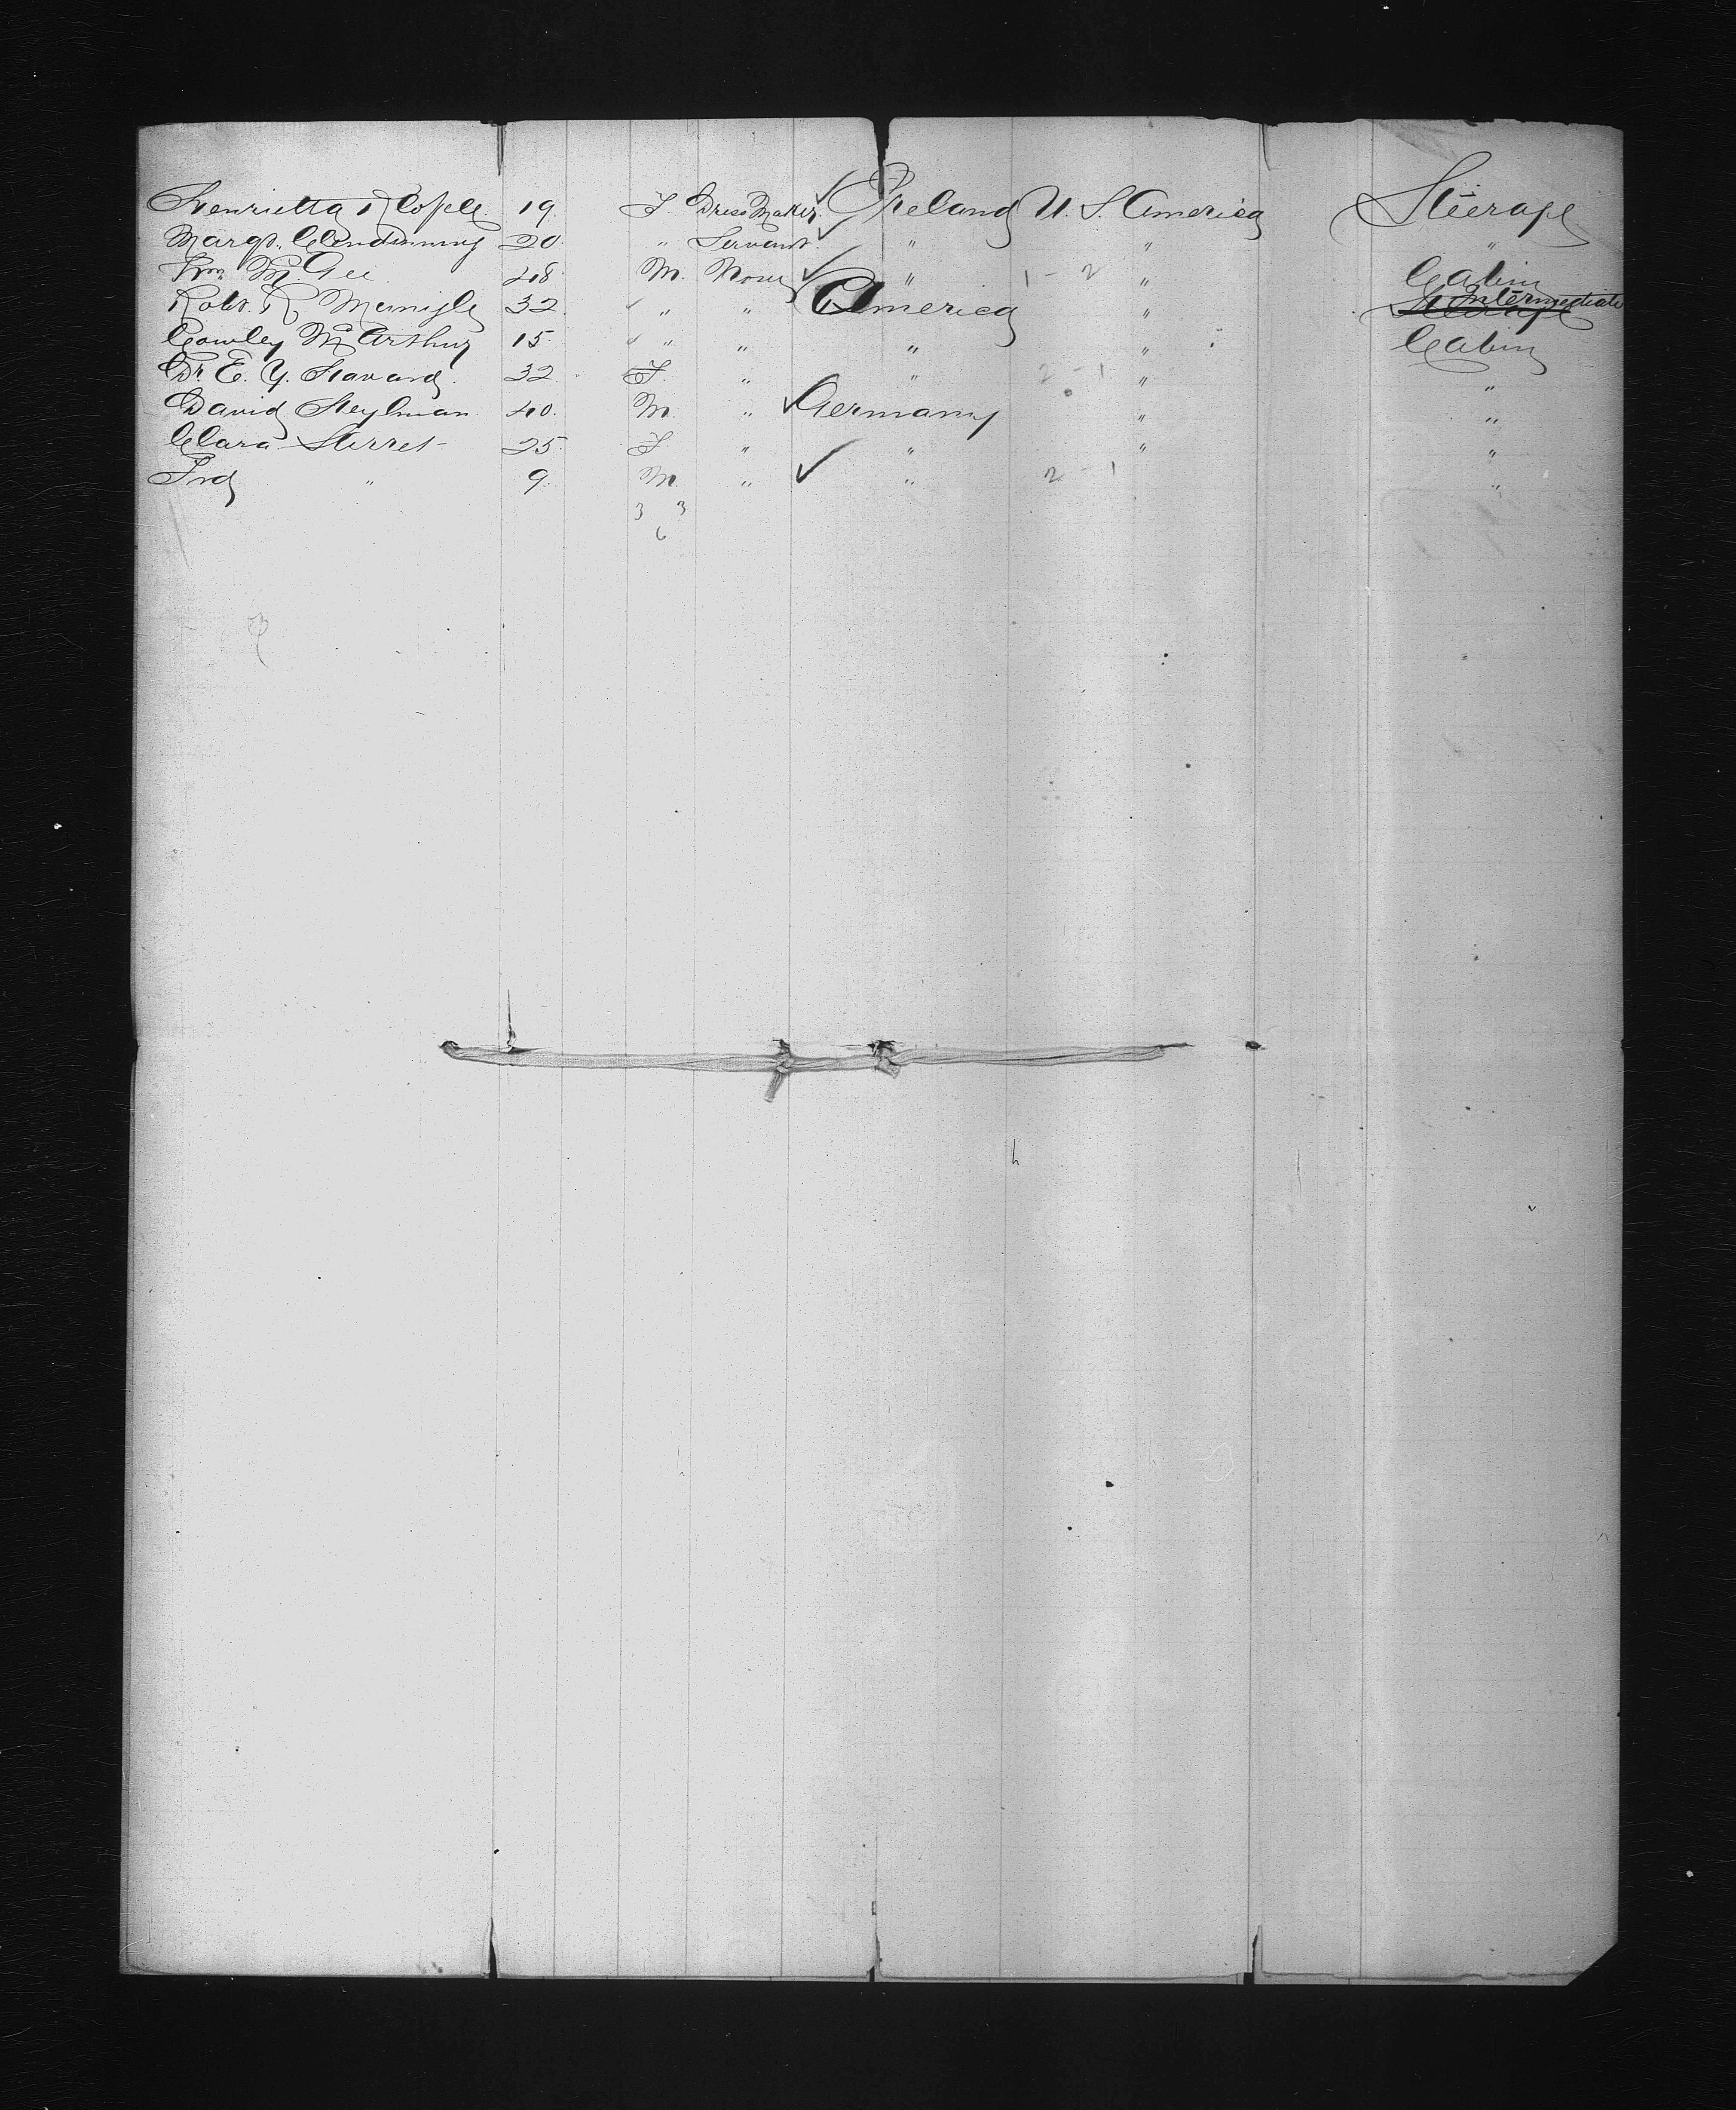 Henrietta 19. F. Dress Maker. Ireland U. S. America Steerage
Margt. Clendinning 20. " Servant. " " "
Wm McGee 48. M. None " 1 - 2 " Cabin
Robt. R. 32. " " America " Steerage Intermediate
Cowley McArthur 15. " " " " Cabin
Dr. E. Y. 32. F. " " 2 - 1 " "
David Heylman 40. M. " Germany " "
Clara Sterret 25. F. " " " "
Frd " 9. M. " " 2 - 1 "
3 3
6